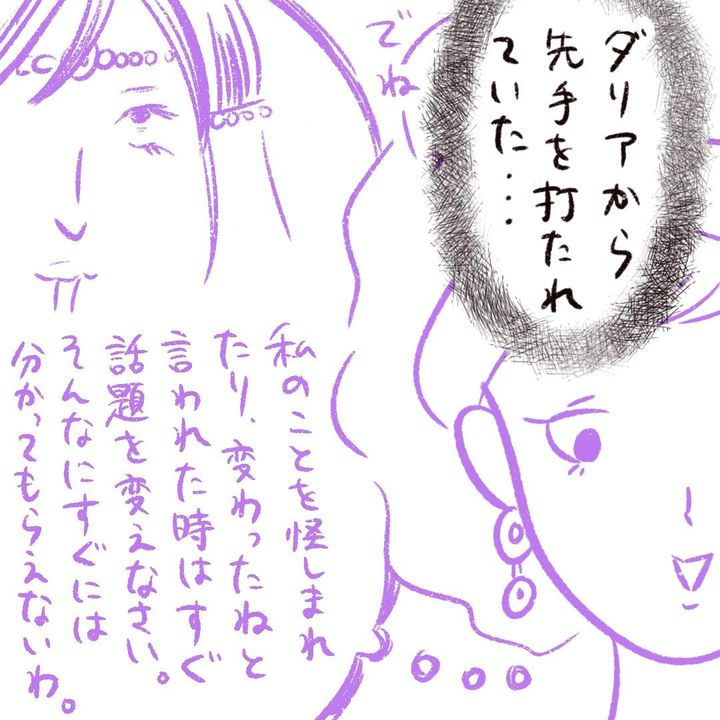 ダリアから
先手を打たれ
ていた…
でねー
私のことを怪しまれ
たり、変わったねと
言われた時はすぐ
話題を変えなさい。
そんなにすぐには
分かってもらえないわ。